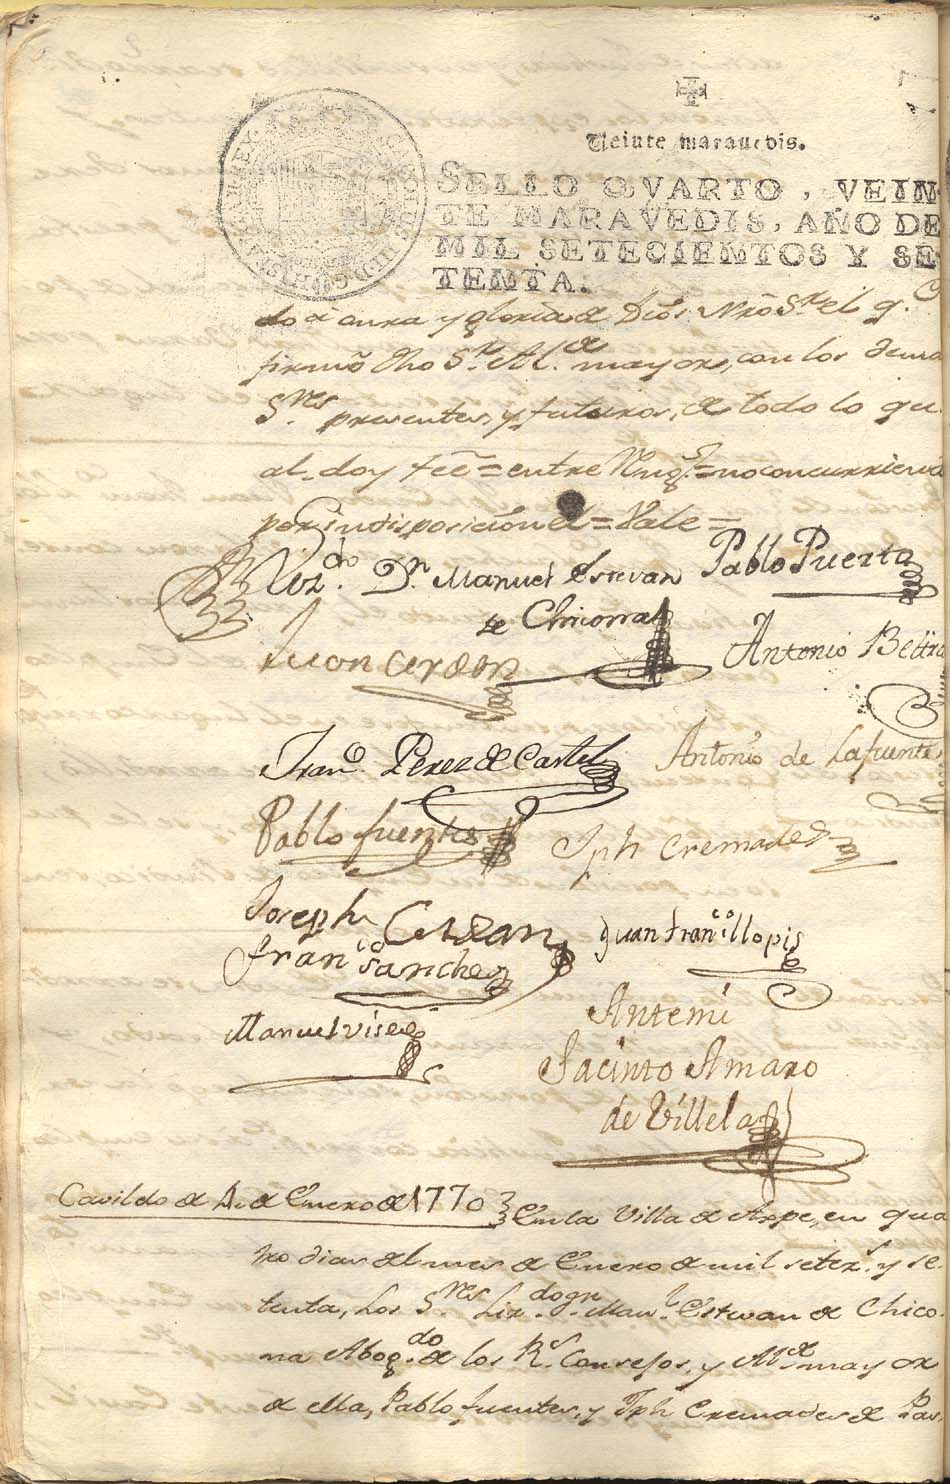 Veinte maravedis.
SELLO QVARTO, VEIN
TE MARAVEDIS, AÑO DE
MIL SETECIENTOS Y SE
TENTA.
do â onrra y gloria de Dios Nrõ Sr. el q.
firmò dho Sr. Alde. mayor, con los demas
Sres. presentes, y futuros, de todo lo qu
al doy feè = entre Rengs. = no concurriendo
por indisposicion el = Vale =
Lizdo. Dn. Manuel Estevan
de Chicorra
Pablo Puerto
Juan Cerdan
Antonio Beltra
Franco. Perez de Castel
Antonio de Lafuente
Pablo fuentes
Jph Cremades
Joseph Cerdan
Juan Franco. llopis
Franco. Sanchez
Antemi
Manuel visedo
Jacinto Amaro
de Villela
Cavildo de 4. de Enero de 1770
En la Villa de Aspe, en qua
tro dias del mes de Enero de mil setezs. y se
tenta, Los Sres. Lizdo. dn. Manl. Estevan de Chico
na Abogdo. de los Rs. Consejos, y Alde. mayor
de ella, Pablo fuentes, y Jph Cremades de Pas